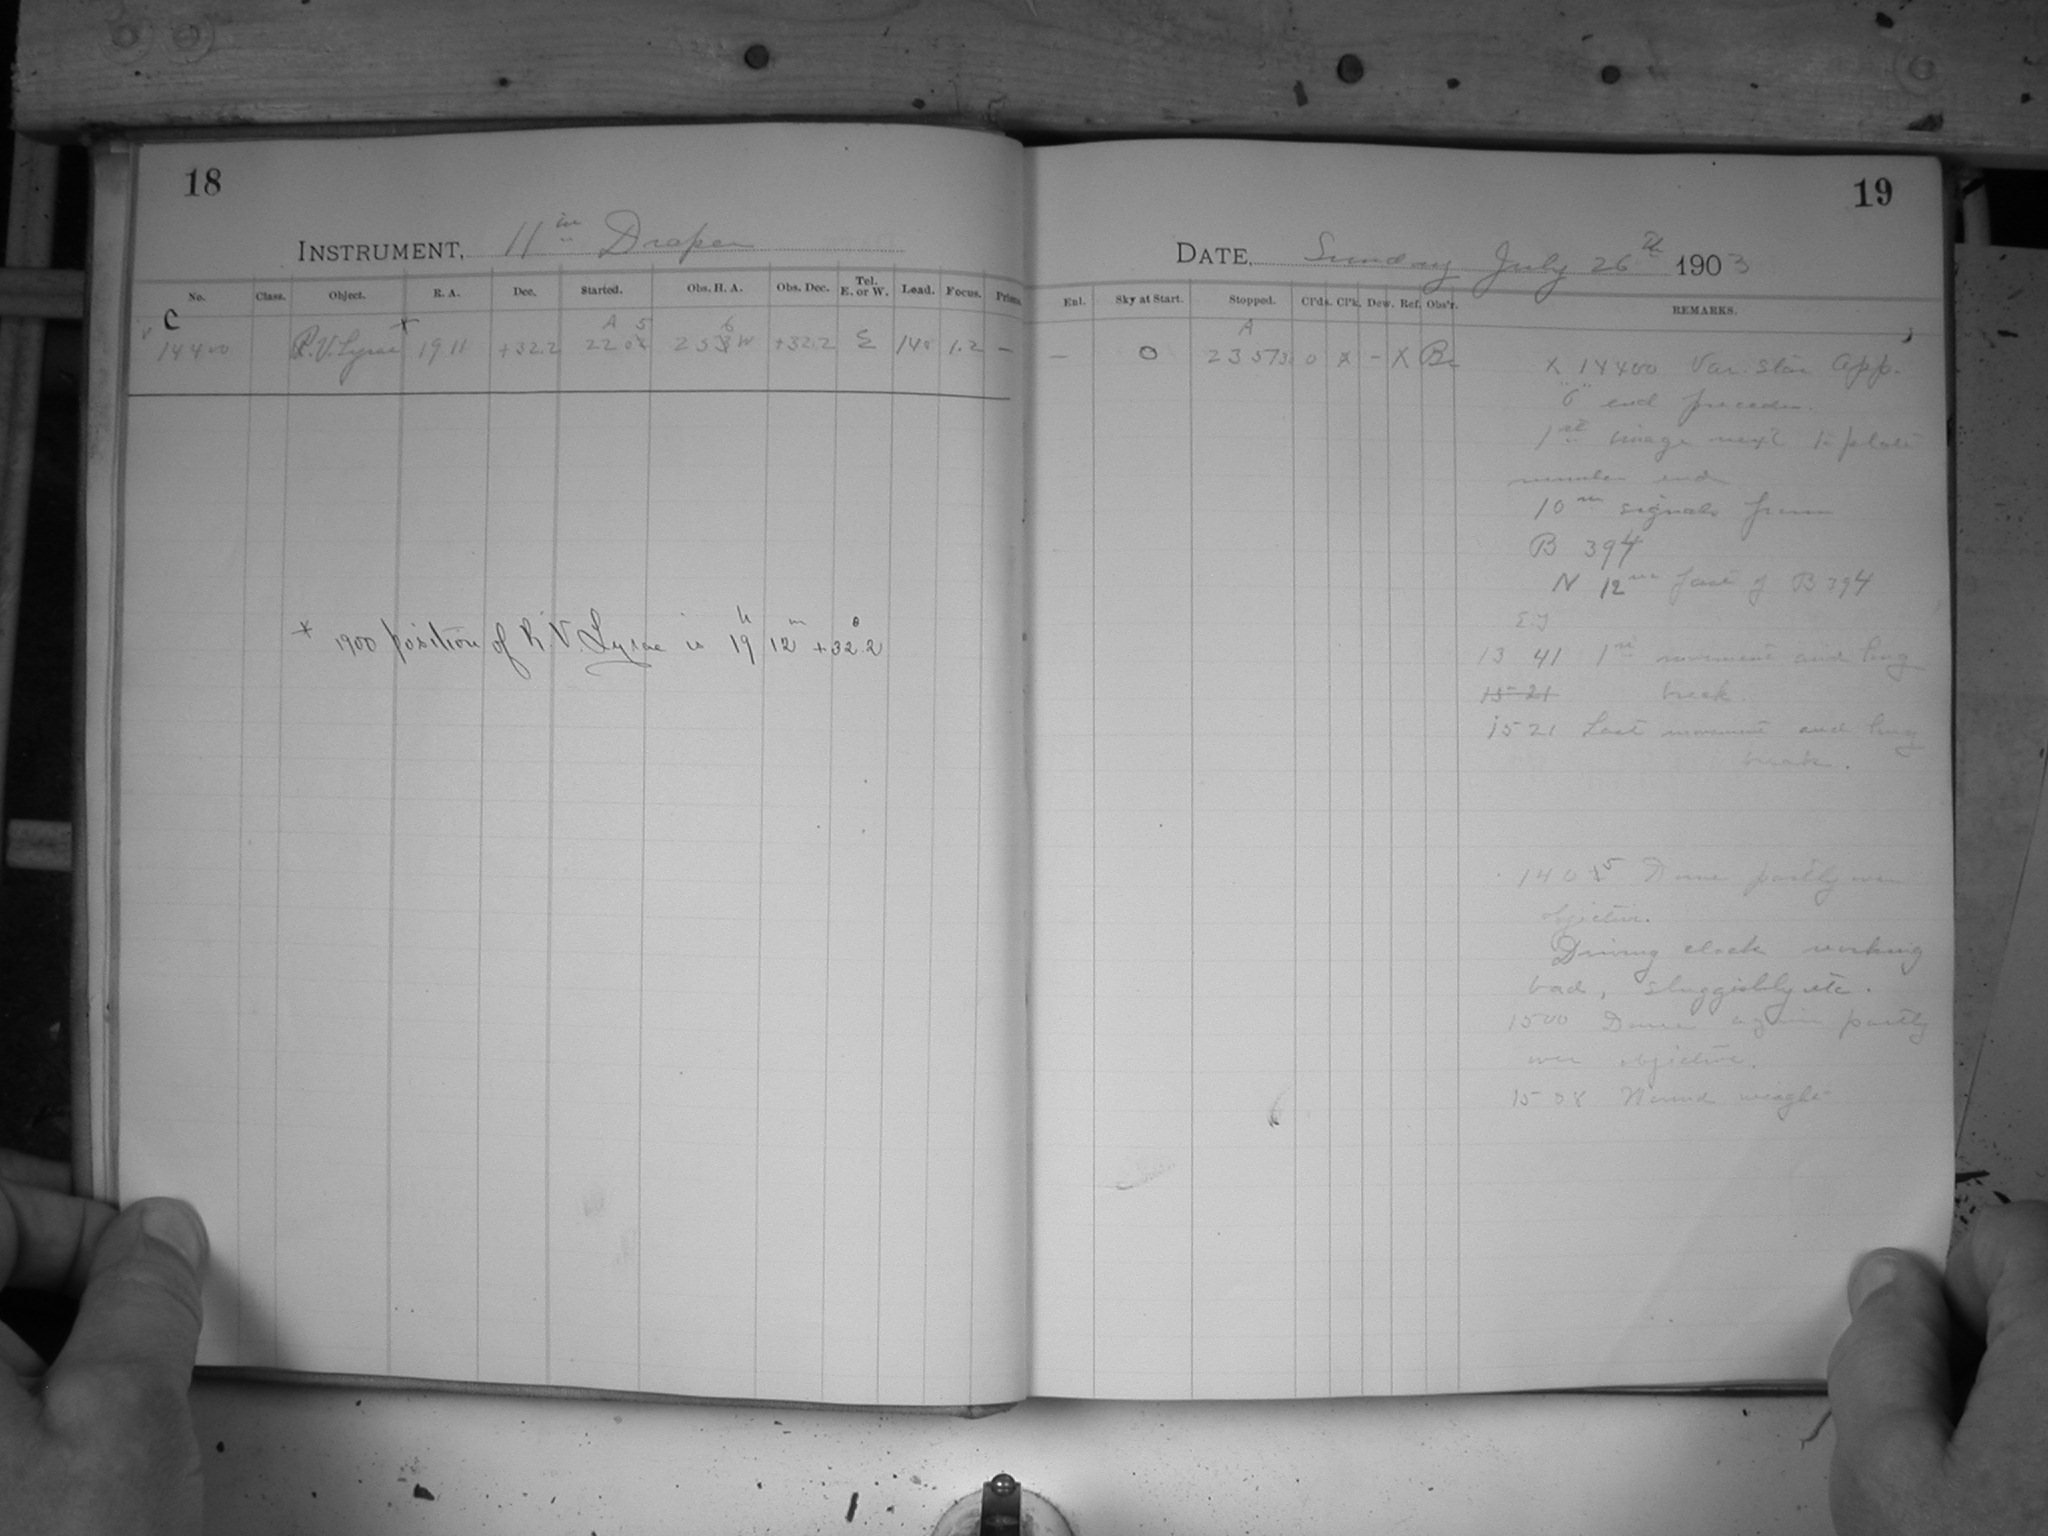 18
INSTRUMENT, 11 in Draper
No. Class. Object. R. A. Dec. Started. Obs. H. A. Obs. Dec. Tel. E. or W. Lead. Focus. Prisms
C A 5 6
14400 R.V. Lyrae * 19 11 +32.2 22 02 23 53 W +32.2 E 148 1.2 —
* 1900 position of R.V. Lyrae is 19h 12m +32°.2
19
DATE, Sunday July 26th 1903
Enl. Sky at Start. Stopped. Cl'ds. Cl'k. Dew. Ref. Obs'r. REMARKS.
A
— 0 23 57 0 x - X
X 14400 Var. star app.
"6" end precedes.
1st image next to plate
number end
10m signals from
B 394
N 12m fast of B 394
E.T
13 41 1st movement and long
15 21 break.
15 21 Last movement and long
break.
14 0 5 Dome partly over
objective.
Driving clock working
bad, sluggishly etc.
1500 Dome again partly
over objective.
15 08 Wound weight